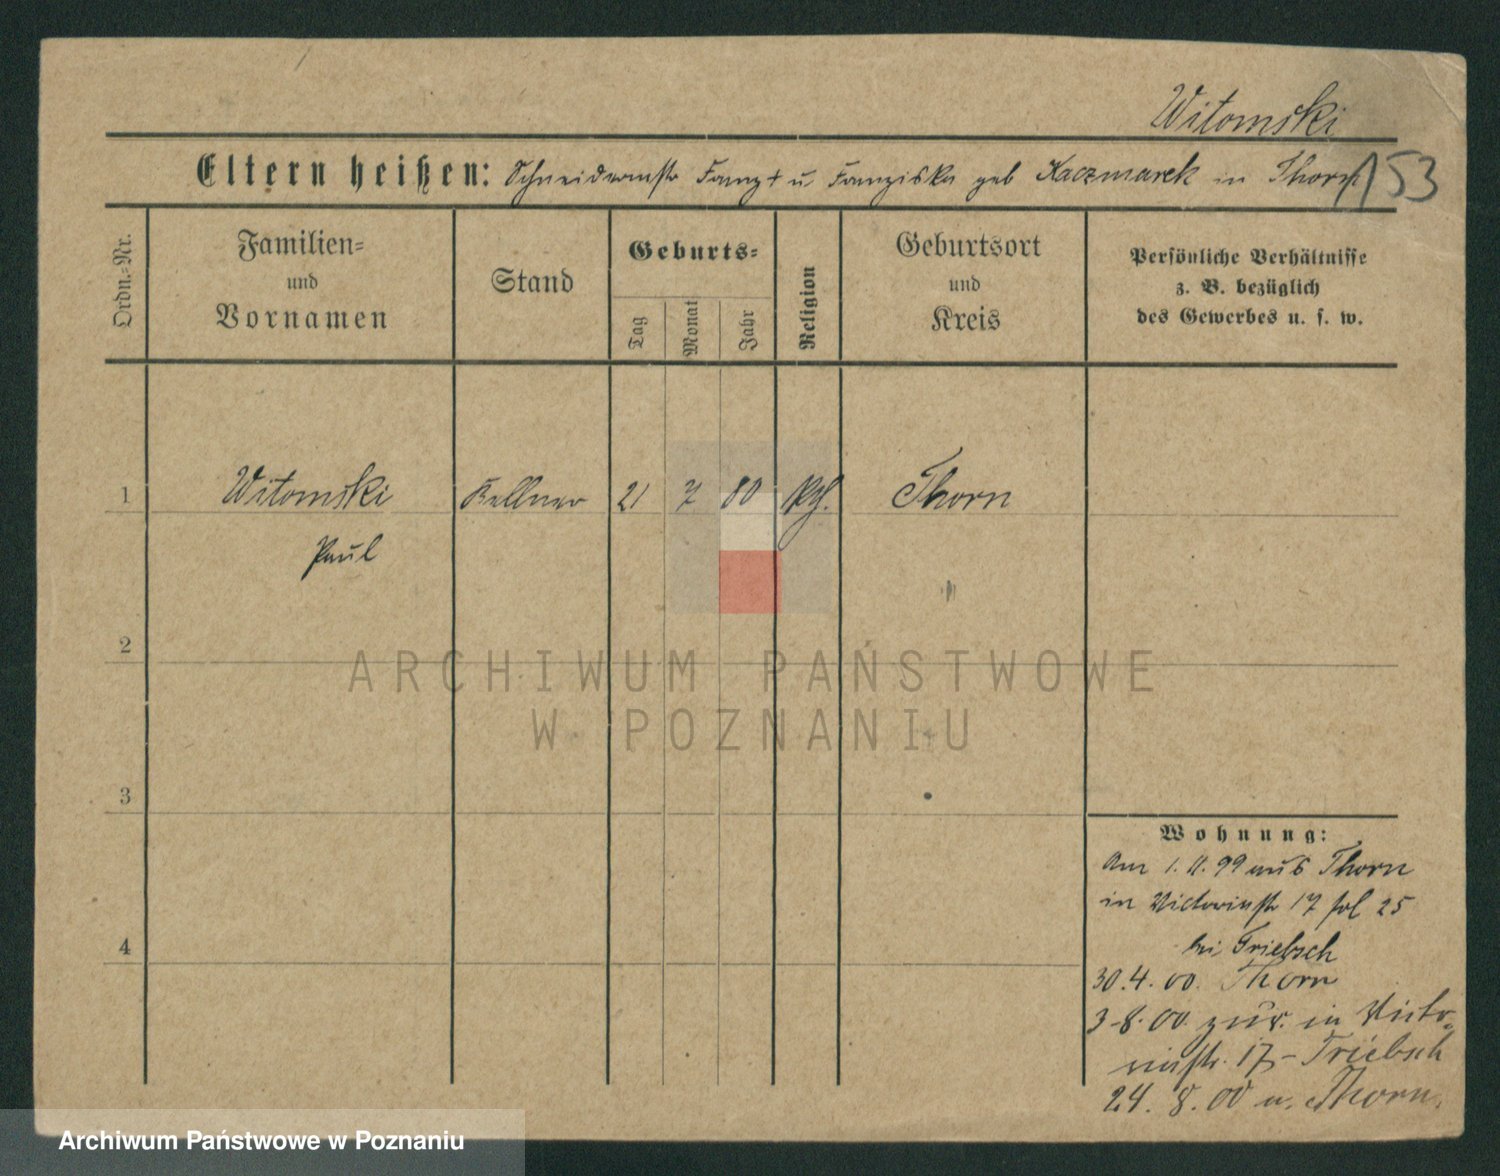 Witomski
Eltern heißen: Schneidermstr Franz † u Franziska geb Kaczmarek in Thorn
153
Ordn.-Nr.
Familien-
und
Vornamen
Stand
Geburts-
Tag
Monat
Jahr
Religion
Geburtsort
und
Kreis
Persönliche Verhältnisse
z. B. bezüglich
des Gewerbes u. s. w.
1 Witomski Kellner 21 7 80 Thorn
Paul
2
3
4
ARCHIWUM PAŃSTWOWE
W POZNANIU
Wohnung:
Am 1. 11. 99 aus Thorn
in Victoriastr 17 25
bei Triebsch
30. 4. 00. Thorn
3-8. 00. zur. in Victo-
riastr. 17 - Triebsch
24. 8. 00 n. Thorn.
Archiwum Państwowe w Poznaniu